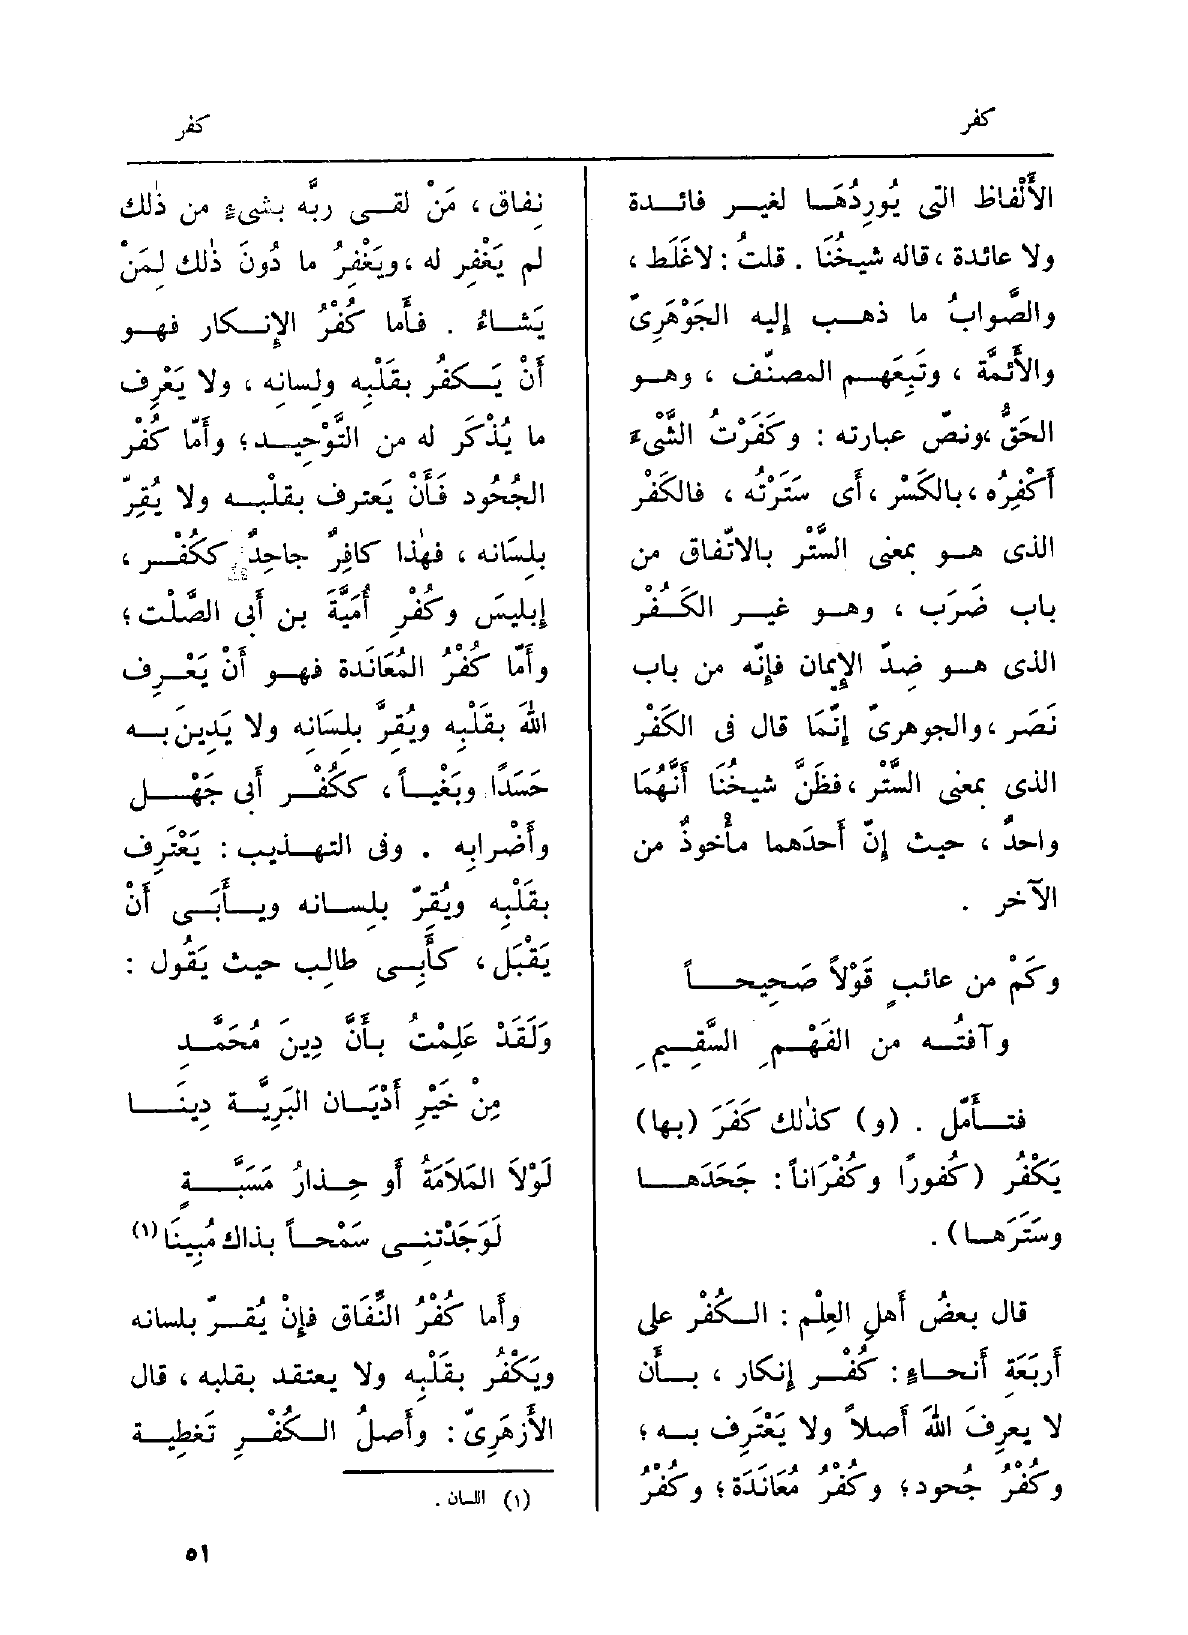 كفر
كفر
الأَلْفاظ التى يُورِدُهَــا لغيــر فائــدة
ولا عائدة ، قاله شيخُنَا . قلتُ : لاغَلَط ،
والصَّوابُ ما ذهــب إليه الجَوْهَرِىّ
والأَئمَّة ، وتَبِعَهــم المصنّف ، وهــو
الحَقُّ ، ونصّ عبارته : وكَفَرْتُ الشَّىْءَ
أَكْفِرُه ، بالكَسْر ، أى سَتَرْتُه ، فالكَفْر
الذى هــو بمعنى السَّتْر بالاتّفاق من
باب ضَرَب ، وهــو غيــر الكُــفْر
الذى هــو ضِدّ الإِيمان فإِنّه من باب
نَصَر ، والجوهرىّ إِنّمَا قال فى الكَفْر
الذى بمعنى السَّتْر ، فظَنَّ شيخُنَا أَنَّهُمَا
واحدٌ ، حيث إِنّ أَحدَهما مأْخوذٌ من
الآخر .
وكَمْ من عائبٍ قَوْلاً صَحِيحــاً
وآفتُــه من الفَهْــمِ السَّقِيــمِ
فتــأَمّل . (و) كذٰلك كَفَرَ (بها)
يَكْفُر (كُفورًا وكُفْرَاناً : جَحَدَهــا
وسَتَرَهــا) .
قال بعضُ أَهلِ العِلْم : الــكُفْر على
أَربَعَة أَنحــاءٍ : كُفْــر إِنكار ، بــأَن
لا يعرِفَ اللهَ أَصلاً ولا يَعْتَرِف بــه ؛
وكُفْرُ جُحود ؛ وكُفْرُ مُعَانَدَة ؛ وكُفْرُ
نِفاق ، مَنْ لقــى ربَّه بشىءٍ من ذٰلك
لم يَغْفِر له ، ويَغْفِرُ ما دُونَ ذٰلك لِمَنْ
يَشــاءُ . فأَما كُفْرُ الإِنــكار فهــو
أَنْ يَــكفُر بقَلْبِه ولِسانِه ، ولا يَعْرِف
ما يُذْكَر له من التَّوْحِيــد ؛ وأَمّا كُفْر
الجُحُود فَأَنْ يَعترف بقلْبــه ولا يُقِرّ
بلِسَانه ، فهٰذا كافِرٌ جاحِدٌ ككُفْــر ،
إِبليسَ وكُفْرِ أُمَيَّةَ بن أَبى الصَّلْت ؛
وأَمّا كُفْرُ المُعَانَدَة فهــو أَنْ يَعْــرِف
اللهَ بقَلْبِه ويُقِرَّ بلِسَانِه ولا يَدِينَ بــه
حَسَدًا وبَغْيــاً ، ككُفْــر أَبى جَهْــل
وأَضْرابِه . وفى التهــذيب : يَعْتَرِف
بقَلْبِه ويُقِرّ بلِســانه ويــأْبَــى أَنْ
يَقْبَل ، كأَبِــى طالِب حيث يَقُول :
وَلَقَدْ عَلِمْتُ بــأَنَّ دِينَ مُحَمَّــد
مِنْ خَيْرِ أَدْيَــان البَرِيَّــة دِينَــا
لَوْلاَ المَلاَمَةُ أَو حِــذارُ مَسَبَّــةٍ
لَوَجَدْتنِــى سَمْحــاً بذاك مُبِينَا (١)
وأَما كُفْرُ النِّفَاق فإِنْ يُقــرّ بلسانه
ويَكْفُر بقَلْبِه ولا يعتقد بقلبه ، قال
الأَزهَرِىّ : وأَصلُ الــكُفْــرِ تَغطِيــة
(١) اللسان .
٥١